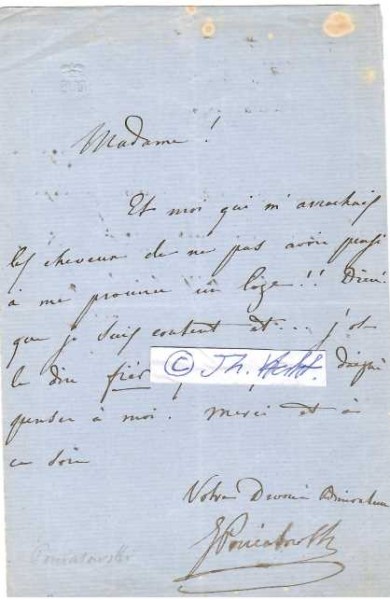 Madame !
Et moi qui m'arrachais
les cheveux de ne pas avoir pensé
à me procurer un loge !! Dieu
que je suis content et... j'ose
le dire fier
© Th. Hecht.
penser à moi. Merci et à
ce soir
Votre Dévoué Admirateur
J Poniatowski
Poniatowski